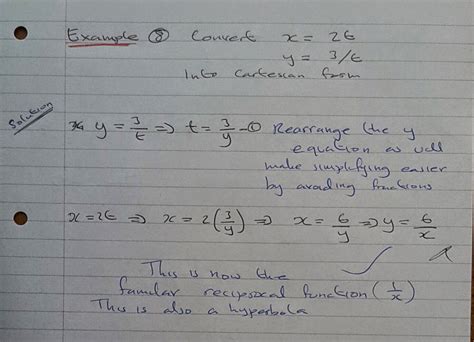 Example ⑧ Convert x = 2t
y = 3/t
Into Cartesian form
Solution
y = 3/t ⇒ t = 3/y -① Rearrange the y
equation as will
make simplifying easier
by avoding fractions
x = 2t ⇒ x = 2(3/y) ⇒ x = 6/y ⇒ y = 6/x
This is now the
familar reciprocal function (1/x)
This is also a hyperbola